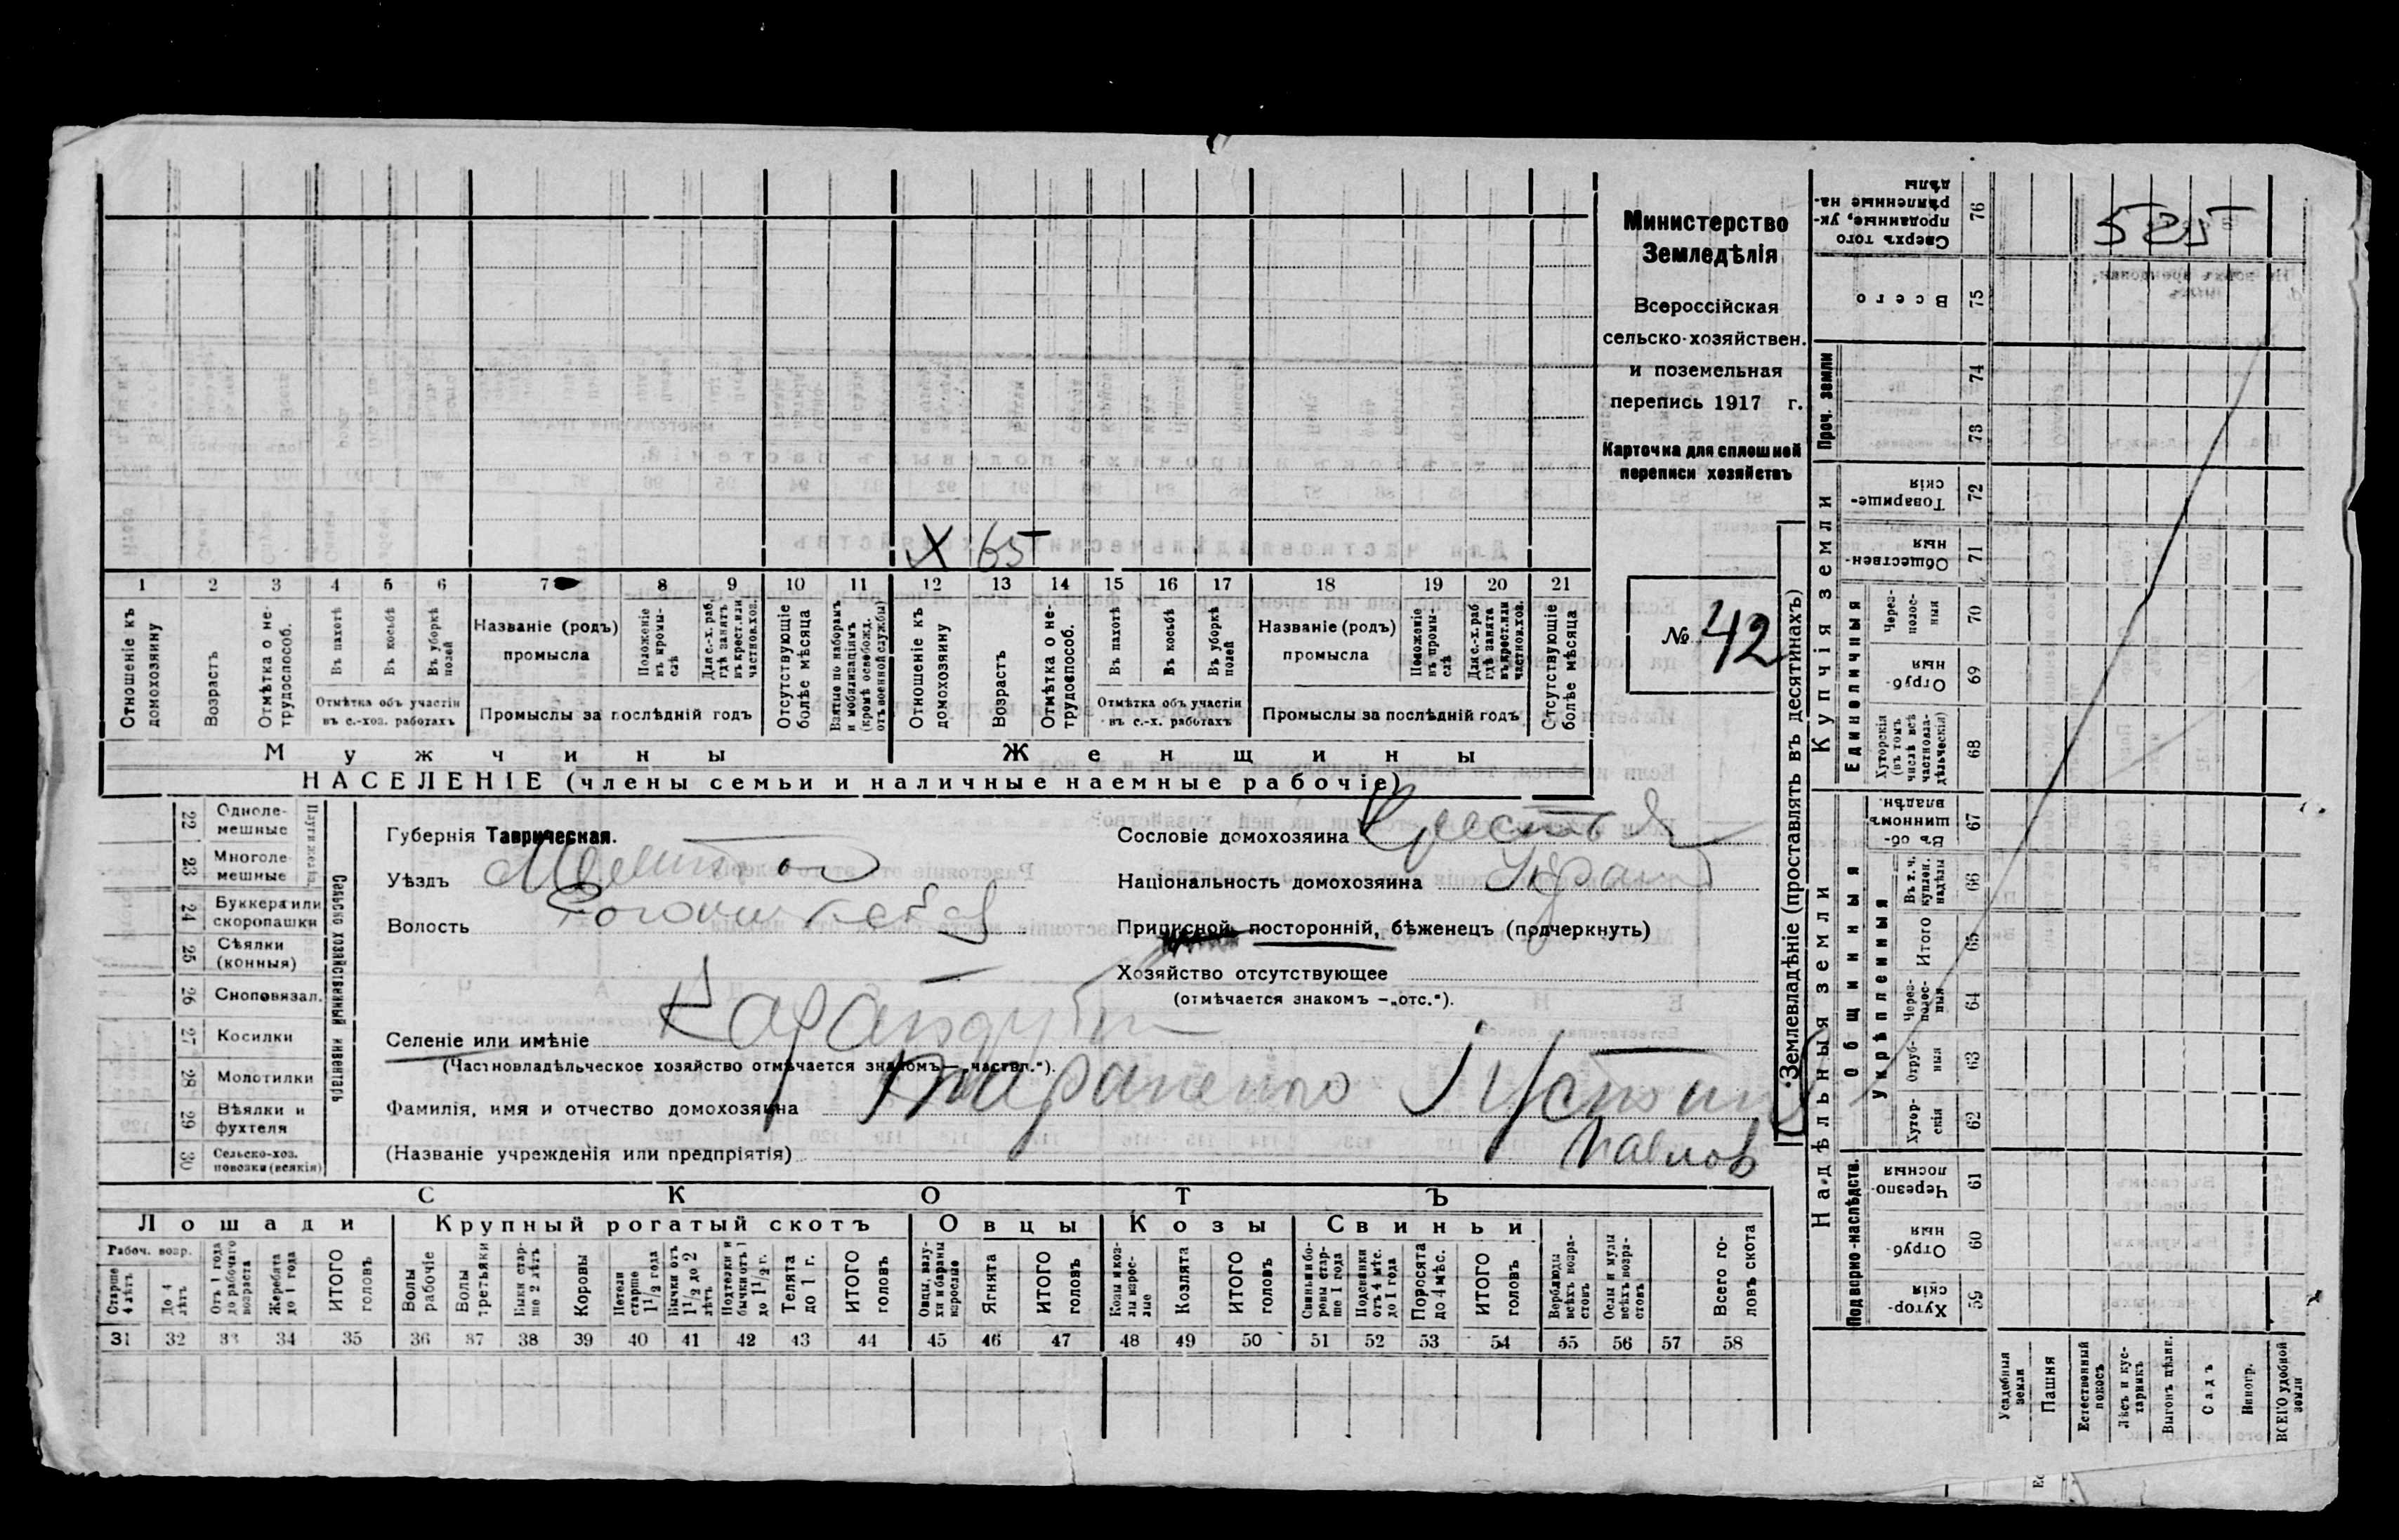 Х 65
1 2 3 4 5 6 7 8 9 10 11 12 13 14 15 16 17 18 19 20 21
Отношеніе къ домохозяину
Возрастъ
Отмѣтка о не-трудоспособ.
Въ пахотѣ
Въ косьбѣ
Въ уборкѣ полей
Отмѣтка объ участіи въ с.-хоз. работахъ
Названіе (родъ) промысла
Положеніе въ промы-слѣ
Для с.-х. раб. гдѣ занятъ въ крест. или частнов. хоз.
Промыслы за послѣдній годъ
Отсутствующіе болѣе мѣсяца
Взятые по наборамъ и мобилизаціямъ (кромѣ освобожд. отъ военной службы)
Отношеніе къ домохозяину
Возрастъ
Отмѣтка о не-трудоспособ.
Въ пахотѣ
Въ косьбѣ
Въ уборкѣ полей
Отмѣтка объ участіи въ с.-х. работахъ
Названіе (родъ) промысла
Положеніе въ промы-слѣ
Для с.-х. раб. гдѣ занята въ крест. или частнов. хоз.
Промыслы за послѣдній годъ
Отсутствующіе болѣе мѣсяца
Мужчины Женщины
НАСЕЛЕНІЕ (члены семьи и наличные наемные рабочіе)
Министерство
Земледѣлія
Всероссійская
сельско-хозяйствен.
и поземельная
перепись 1917 г.
Карточка для сплошной
переписи хозяйствъ
№ 42
22 Одноле-мешные
23 Многоле-мешные
24 Буккера или скоропашки
25 Сѣялки (конныя)
26 Сноповязал.
27 Косилки
28 Молотилки
29 Вѣялки и фухтеля
30 Сельско-хоз. повозки (всякія)
Сельско хозяйственный инвентарь
Губернія Таврическая.
Уѣздъ Мелитоп
Волость
Селеніе или имѣніе
(Частновладѣльческое хозяйство отмѣчается знакомъ—„частвл.“).
Фамилія, имя и отчество домохозяина Тараненко Устин
(Названіе учрежденія или предпріятія) Павлов
Сословіе домохозяина Крестья
Національность домохозяина Украин
Приписной, посторонній, бѣженецъ (подчеркнуть)
Хозяйство отсутствующее
(отмѣчается знакомъ —„отс.“).
СКОТЪ
Лошади Крупный рогатый скотъ Овцы Козы Свиньи
Рабоч. возр.
Старше 4 лѣтъ
До 4 лѣтъ
Отъ 1 года до рабочаго возраста
Жеребята до 1 года
ИТОГО головъ
Волы рабочіе
Волы третьяки
Быки стар-ше 2 лѣтъ
Коровы
Нетели старше 1 1/2 года
Бычки отъ 1 1/2 до 2 лѣтъ
Подтелки и бычки отъ 1 до 1 1/2 г.
Телята до 1 г.
ИТОГО головъ
Овцы, валу-хи и бараны взрослые
Ягнята
ИТОГО головъ
Козы и коз-лы взрос-лые
Козлята
ИТОГО головъ
Свиньи и бо-ровы стар-ше 1 года
Подсвинки отъ 4 мѣс. до 1 года
Поросята до 4 мѣс.
ИТОГО головъ
Верблюды всѣхъ возра-стовъ
Ослы и мулы всѣхъ возра-стовъ
Всего го-ловъ скота
31 32 33 34 35 36 37 38 39 40 41 42 43 44 45 46 47 48 49 50 51 52 53 54 55 56 57 58
Землевладѣніе (проставлять въ десятинахъ)
Надѣльныя земли
Купчія земли
Проч. земли
Подворно-наслѣдств.
Общинныя
Укрѣпленныя
Единоличныя
Сверхъ того проданные, ук-рѣпленные на-дѣлы 76
Всего 75
74
73
Товарище-скія 72
Обществен-ныя 71
Через-полос-ныя 70
Отруб-ныя 69
Хуторскія (въ томъ числѣ всѣ частновла-дѣльческія) 68
Въ об-щинномъ владѣн. 67
Въ т. ч. куплен. надѣлы 66
Итого 65
Через-полос-ныя 64
Отруб-ныя 63
Хутор-скія 62
Черезпо-лосныя 61
Отруб-ныя 60
Хутор-скія 59
Усадебная земля
Пашня
Естественный покосъ
Лѣсъ и кус-тарникъ
Выгонъ цѣлин.
Садъ
Виногр.
ВСЕГО удобной земли